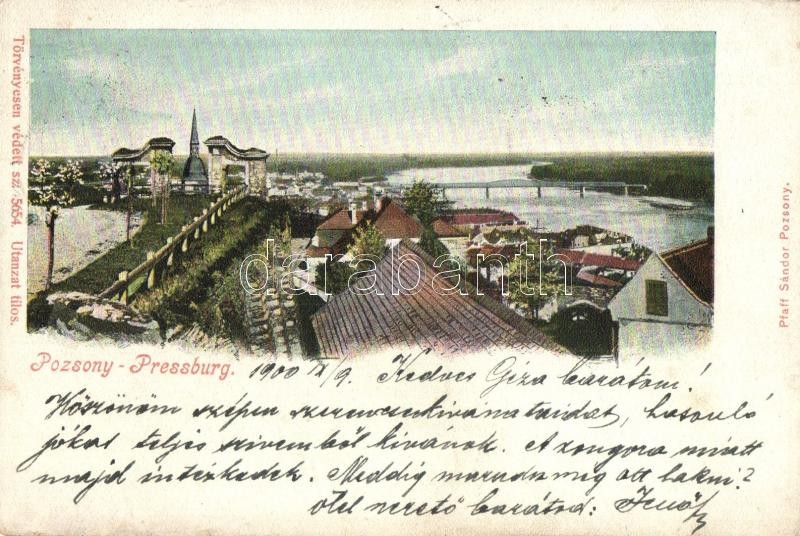 Törvényesen védett szz 5654. Utánzat tilos.
darabanth
Pfaff Sándor Pozsony.
Pozsony - Pressburg. 1900 IX/9. Kedves Géza barátom!
Köszönöm szépen szerencsekivánataidat, hasonló
jókat teljes szivemből kivánok. A zongora miatt
majd intézkedek. Meddig maradsz mig ott lakni?
Ölel szerető barátod: Jenő